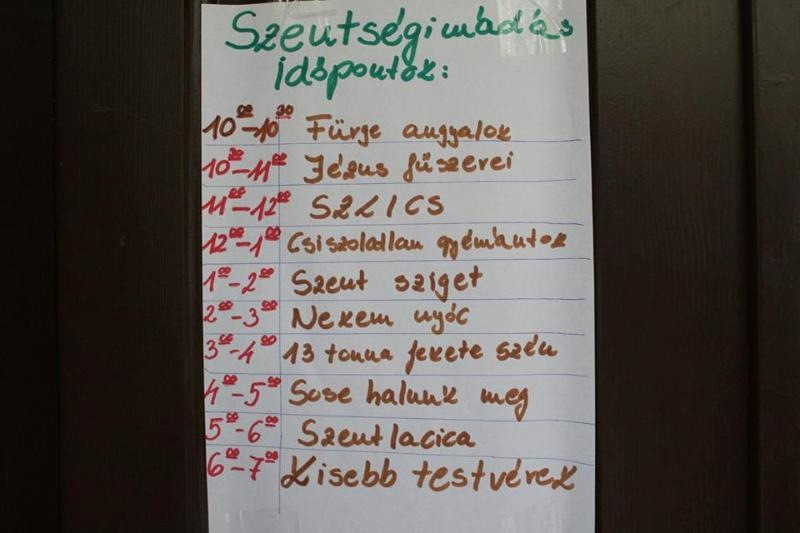 Szentségimádás
időpontok:
10⁰⁰-10³⁰ Fürge angyalok
10³⁰-11⁰⁰ Jézus fűszerei
11⁰⁰-12⁰⁰ SZLICS
12⁰⁰-1⁰⁰ Csiszolatlan gyémántok
1⁰⁰-2⁰⁰ Szent sziget
2⁰⁰-3⁰⁰ Nekem nyóc
3⁰⁰-4⁰⁰ 13 tonna fekete szén
4⁰⁰-5⁰⁰ Sose halunk meg
5⁰⁰-6⁰⁰ Szentlacica
6⁰⁰-7⁰⁰ Kisebb testvérek